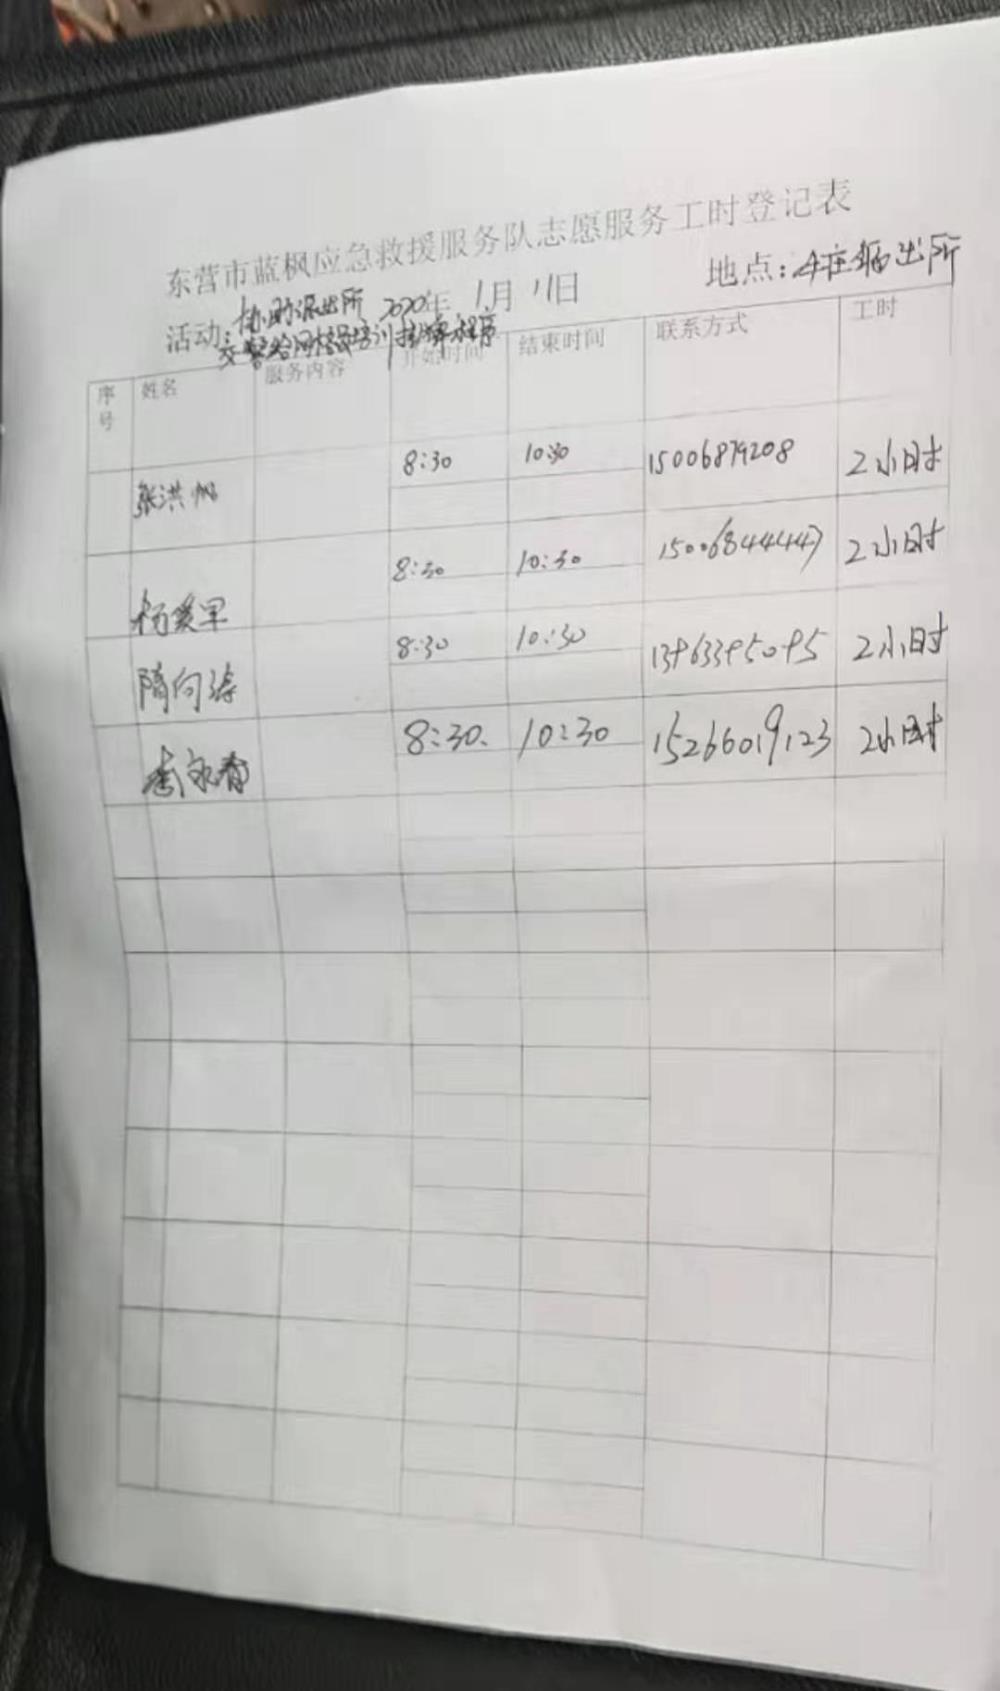 东营市蓝枫应急救援服务队志愿服务工时登记表
活动：协助派出所 2020年 1月 11日 地点：牛庄 出所
交警给网格员培训 程序
序号 姓名 服务内容 开始时间 结束时间 联系方式 工时
张洪 8:30 10:30 15006879208 2小时
杨爱军 8:30 10:30 15006844447 2小时
隋向涛 8:30 10:30 13963395095 2小时
李永春 8:30. 10:30 15266019123 2小时